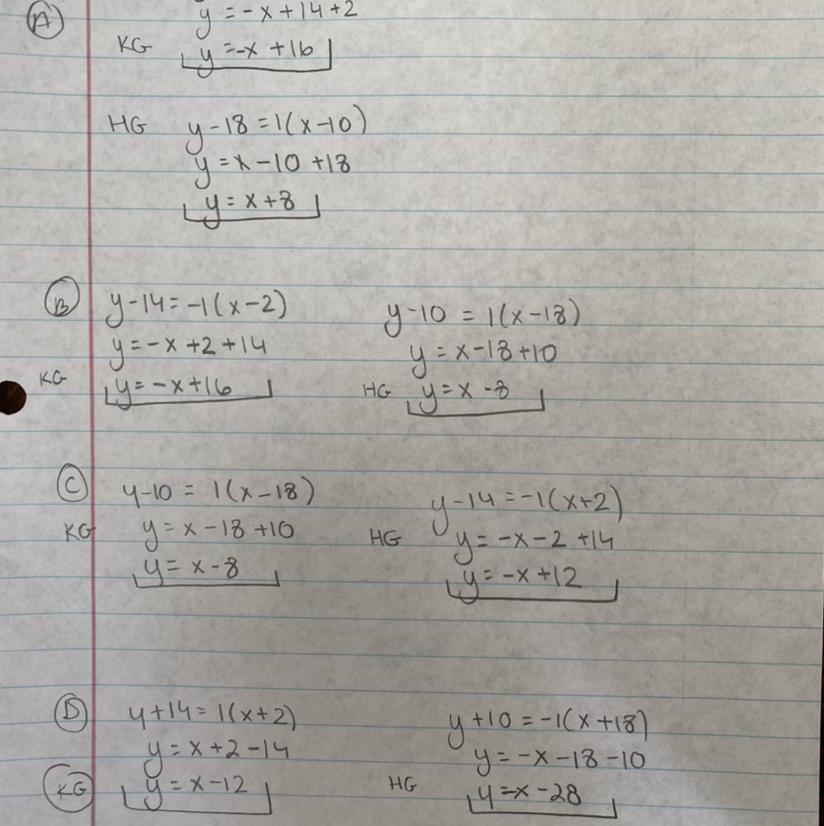 A
y = -x + 14 + 2
KG y = -x + 16
HG y - 18 = 1(x - 10)
y = x - 10 + 18
y = x + 8
B y - 14 = -1(x - 2)
y = -x + 2 + 14
KG y = -x + 16
y - 10 = 1(x - 18)
y = x - 18 + 10
HG y = x - 8
C y - 10 = 1(x - 18)
KG y = x - 18 + 10
y = x - 8
y - 14 = -1(x + 2)
HG y = -x - 2 + 14
y = -x + 12
D y + 14 = 1(x + 2)
y = x + 2 - 14
KG y = x - 12
y + 10 = -1(x + 18)
y = -x - 18 - 10
HG y = -x - 28